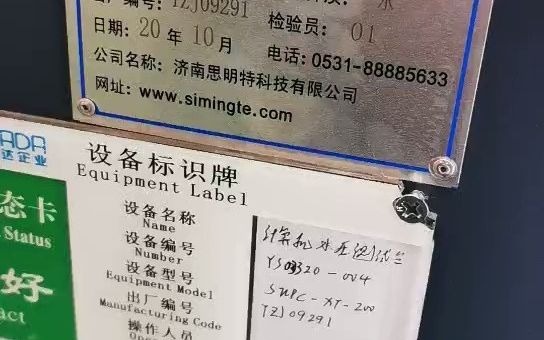 出厂编号: TZJ09291
水
日期: 20 年 10 月
检验员: 01
电话: 0531-88885633
公司名称: 济南思明特科技有限公司
网址: www.simingte.com
ADA
达企业
设备标识牌
Equipment Label
态卡
Status
好
act
设备名称
Name
设备编号
Number
YS0320-004
设备型号
Equipment Model
SUPC-XT-200
出厂编号
Manufacturing Code
TZJ09291
操作人员